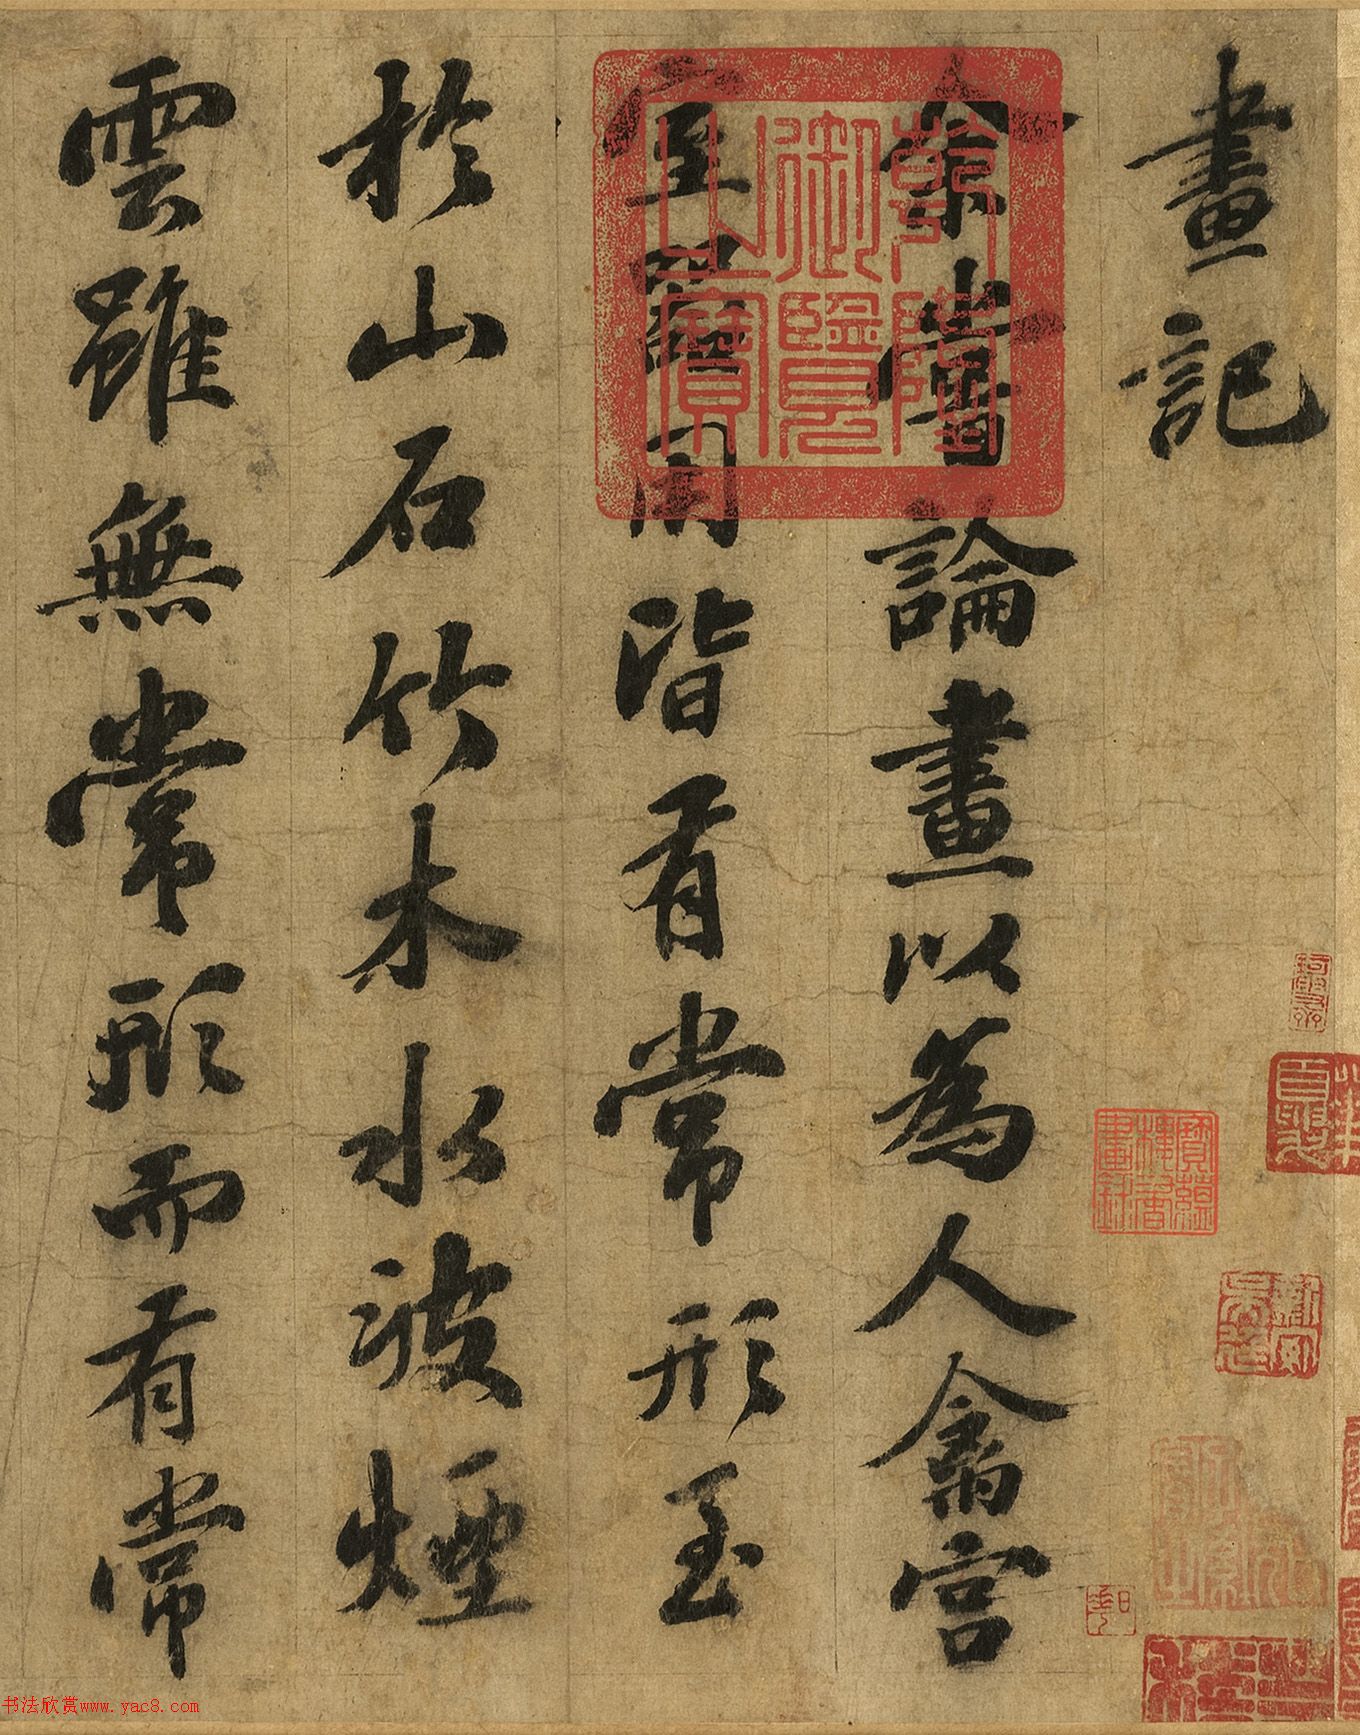 畫記
余嘗論畫以為人禽宮
室器用皆有常形至
於山石竹木水波煙
雲雖無常形而有常
乾隆御覽之寶
書法欣賞www.yac8.com